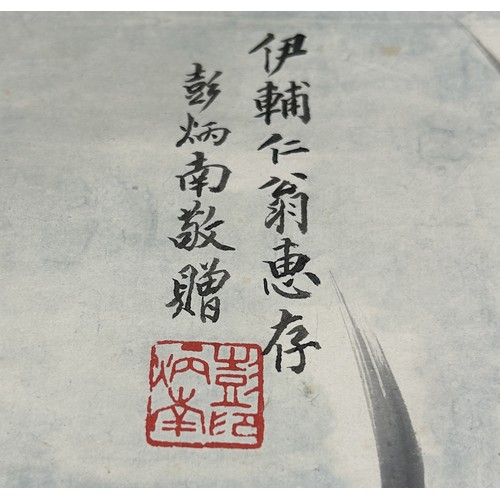 伊輔仁翁惠存
彭炳南敬贈
彭炳南印